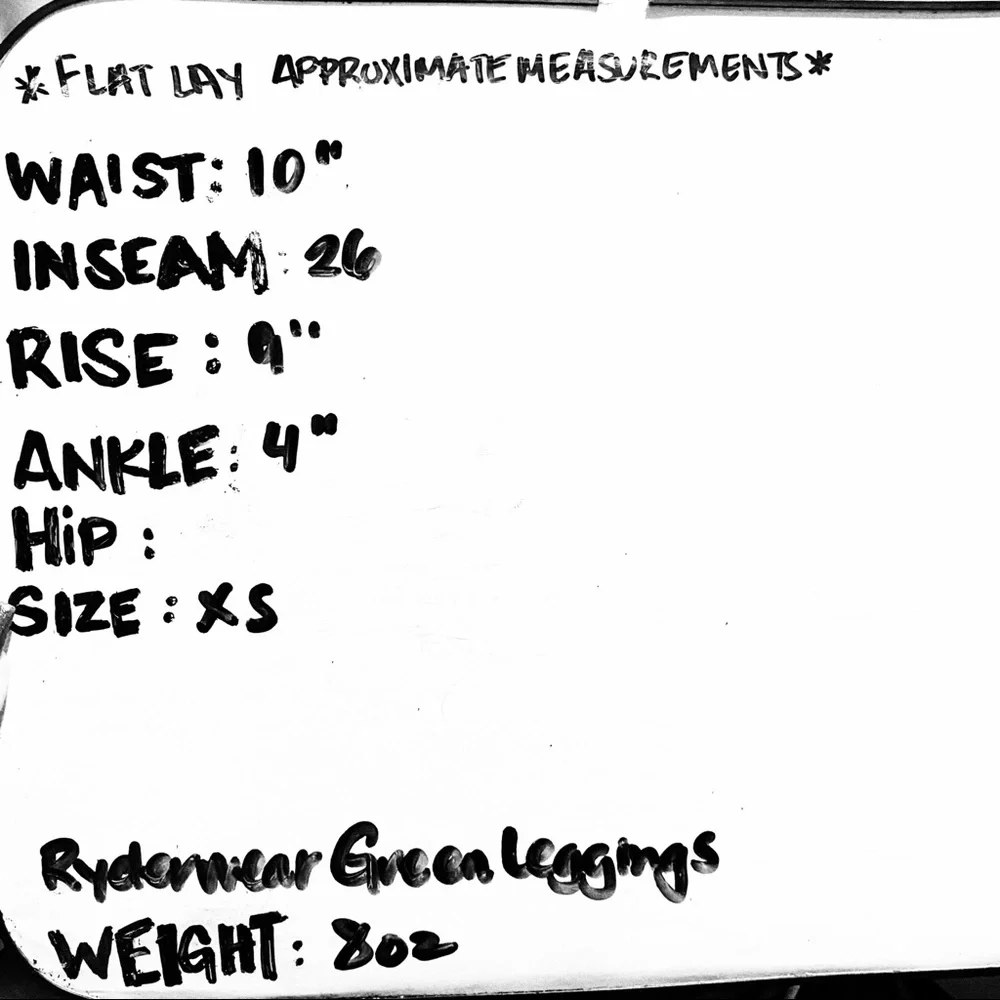 *FLAT LAY APPROXIMATE MEASUREMENTS*
WAIST: 10"
INSEAM: 26
RISE: 9"
ANKLE: 4"
Hip:
SIZE: XS
Ryderwear Green Leggings
WEIGHT: 8oz